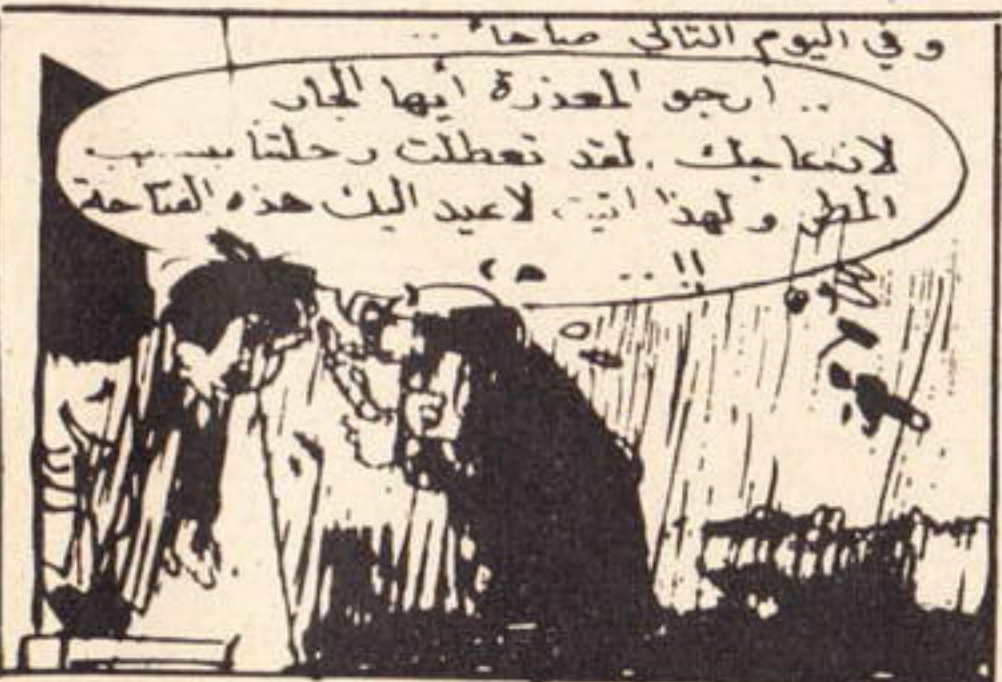 وفي اليوم التالي صباحا" ..
.. ارجو المعذرة أيها الجار
لازعاجك . لقد تعطلت رحلتنا بسبب
المطر ولهذا اتيت لاعيد اليك هذه الفتاحة
!! ..